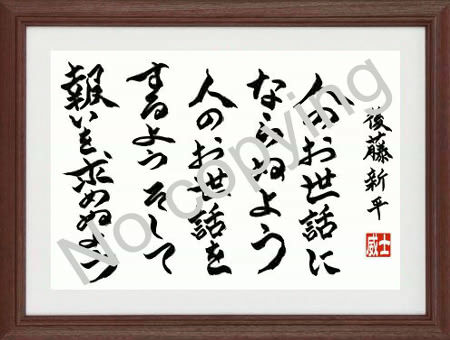 後藤新平
人のお世話に
ならぬよう
人のお世話を
するよう そして
報いを求めぬよう
威士
No copying